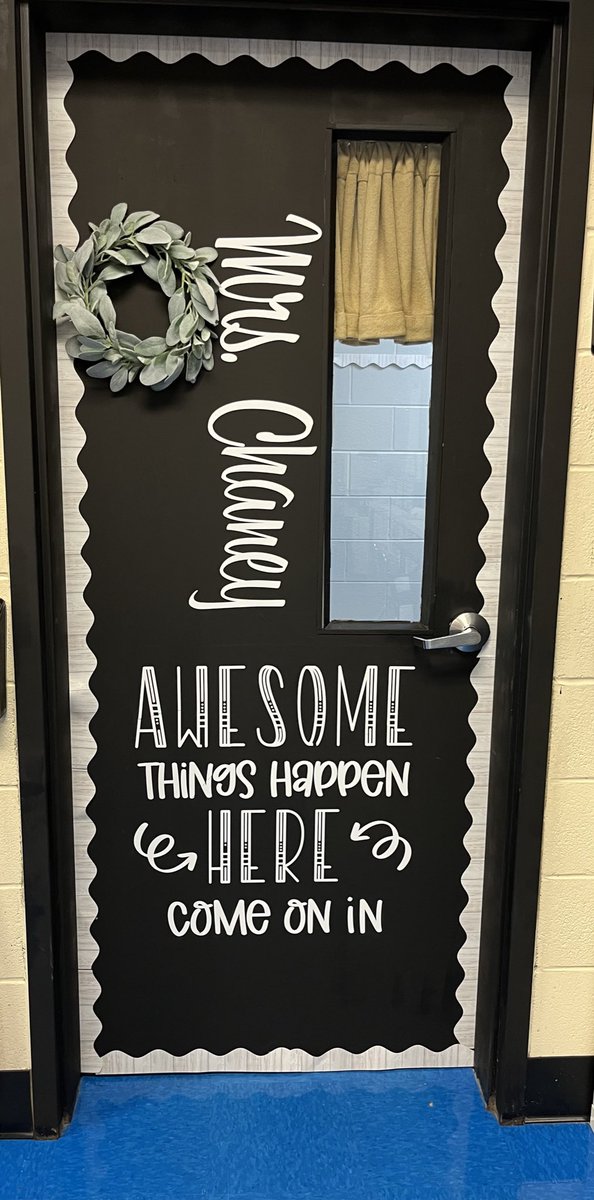 Mrs. Chaney
AWESOME
THINGS HAPPEN
HERE
COME ON IN